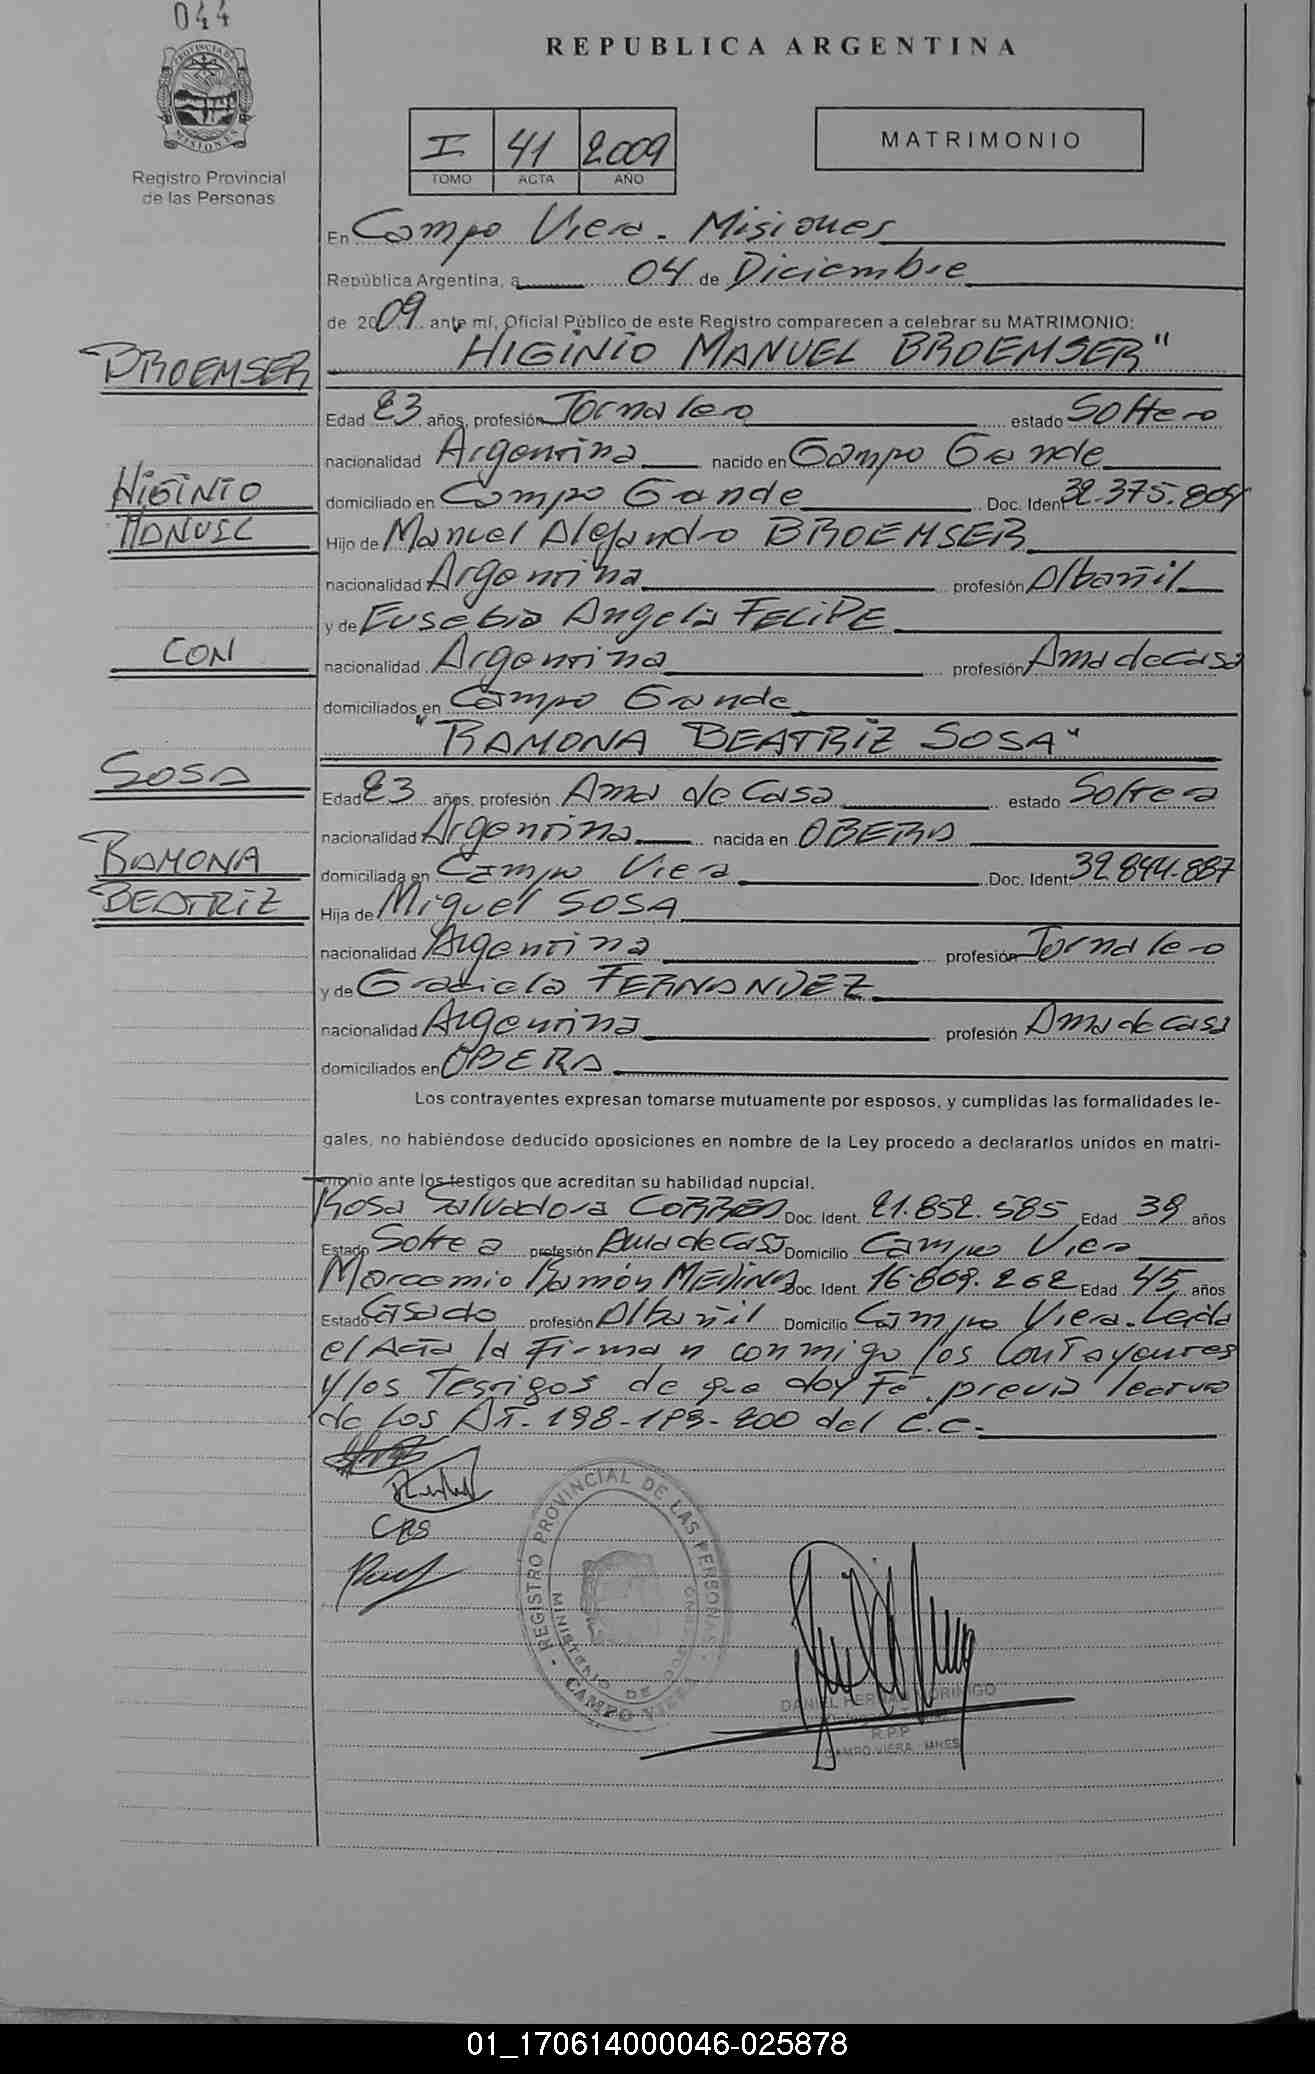 044
PROVINCIA DE
MISIONES
Registro Provincial
de las Personas
REPUBLICA ARGENTINA
I 41 2009
TOMO ACTA AÑO
MATRIMONIO
En Campo Viera - Misiones
República Argentina, a 04 de Diciembre
de 2009 ante mí, Oficial Público de este Registro comparecen a celebrar su MATRIMONIO:
BROEMSER
HIGINIO MANUEL BROEMSER"
Edad 23 años, profesión Jornalero estado Soltero
nacionalidad Argentina nacido en Campo Grande
HIGINIO
domiciliado en Campo Grande Doc. Ident. 32.375.804
MANUEL
Hijo de Manuel Alejandro BROEMSER
nacionalidad Argentina profesión Albañil
y de Eusebia Angela FELIPE
CON
nacionalidad Argentina profesión Ama de casa
domiciliados en Campo Grande
"RAMONA BEATRIZ SOSA"
SOSA
Edad 23 años, profesión Ama de Casa estado Soltera
nacionalidad Argentina nacida en OBERA
RAMONA
domiciliada en Campo Viera Doc. Ident. 32.844.887
BEATRIZ
Hija de Miguel SOSA
nacionalidad Argentina profesión Jornalero
y de Graciela FERNANDEZ
nacionalidad Argentina profesión Ama de casa
domiciliados en OBERA
Los contrayentes expresan tomarse mutuamente por esposos, y cumplidas las formalidades le-
gales, no habiéndose deducido oposiciones en nombre de la Ley procedo a declararlos unidos en matri-
monio ante los testigos que acreditan su habilidad nupcial.
Rosa Salvadora Doc. Ident. 21.852.585 Edad 38 años
Estado Soltera profesión Ama de Casa Domicilio Campo Viera
Marcomio Ramón MEDINA Doc. Ident. 16.809.262 Edad 45 años
Estado Casado profesión Albañil Domicilio Campo Viera. Leida
el Acta la Firman conmigo los Contrayentes
y los Testigos de que doy Fé. previa lectura
de los Art. 198-199-200 del C.C.-
CRS
REGISTRO PROVINCIAL DE LAS PERSONAS
MINISTERIO DE GOBIERNO
CAMPO VIERA
DANIEL
R.P.P.
CAMPO VIERA - MNES.
01_170614000046-025878